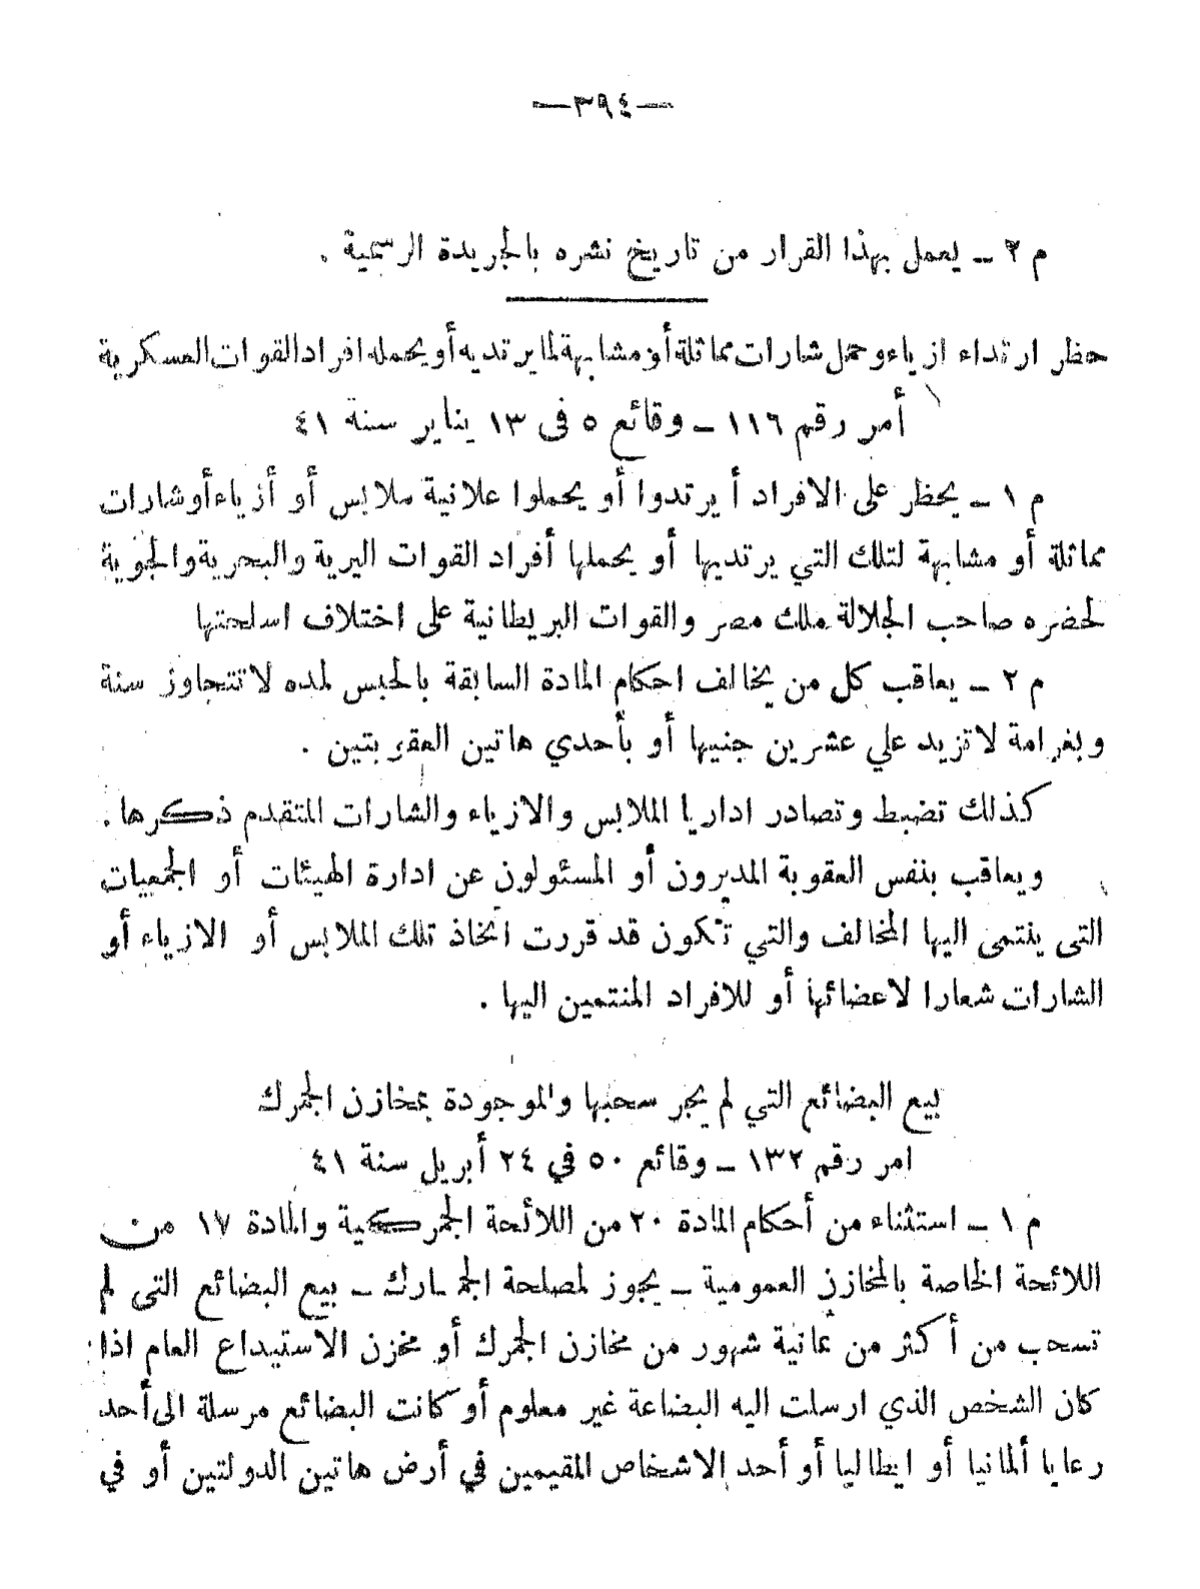 —٣٩٤—
م ٢ – يعمل بهذا القرار من تاريخ نشره بالجريدة الرسمية .
حظر ارتداء ازياء وحمل شارات مماثلة أو مشابهة لما يرتديه أو يحمله افراد القوات العسكرية
أمر رقم ١١٦ – وقائع ٥ فى ١٣ يناير سنة ٤١
م ١ – يحظر على الافراد أ يرتدوا أو يحملوا علانية ملابس أو أزياء أو شارات
مماثلة أو مشابهة لتلك التي يرتديها أو يحملها أفراد القوات البرية والبحرية والجوية
لحضره صاحب الجلالة ملك مصر والقوات البريطانية على اختلاف اسلحتها
م ٢ – يعاقب كل من يخالف احكام المادة السابقة بالحبس لمده لا تتجاوز سنة
وبغرامة لا تزيد علي عشرين جنيها أو بأحدي هاتين العقوبتين .
كذلك تضبط وتصادر اداريا الملابس والازياء والشارات المتقدم ذكرها .
ويعاقب بنفس العقوبة المديرون أو المسئولون عن ادارة الهيئات أو الجمعيات
التى ينتمى اليها المخالف والتي تكون قد قررت اتخاذ تلك الملابس أو الازياء أو
الشارات شعارا لاعضائها أو للافراد المنتمين اليها .
بيع البضائع التي لم يجر سحبها والموجودة بمخازن الجمرك
امر رقم ١٣٢ – وقائع ٥٠ في ٢٤ أبريل سنة ٤١
م ١ – استثناء من أحكام المادة ٢٠ من اللائحة الجمركية والمادة ١٧ من
اللائحة الخاصة بالمخازن العمومية – يجوز لمصلحة الجمارك – بيع البضائع التى لم
تسحب من أكثر من ثمانية شهور من مخازن الجمرك أو مخزن الاستيداع العام اذا
كان الشخص الذي ارسلت اليه البضاعة غير معلوم أو كانت البضائع مرسلة الى أحد
رعايا ألمانيا أو ايطاليا أو أحد الاشخاص المقيمين في أرض هاتين الدولتين أو في